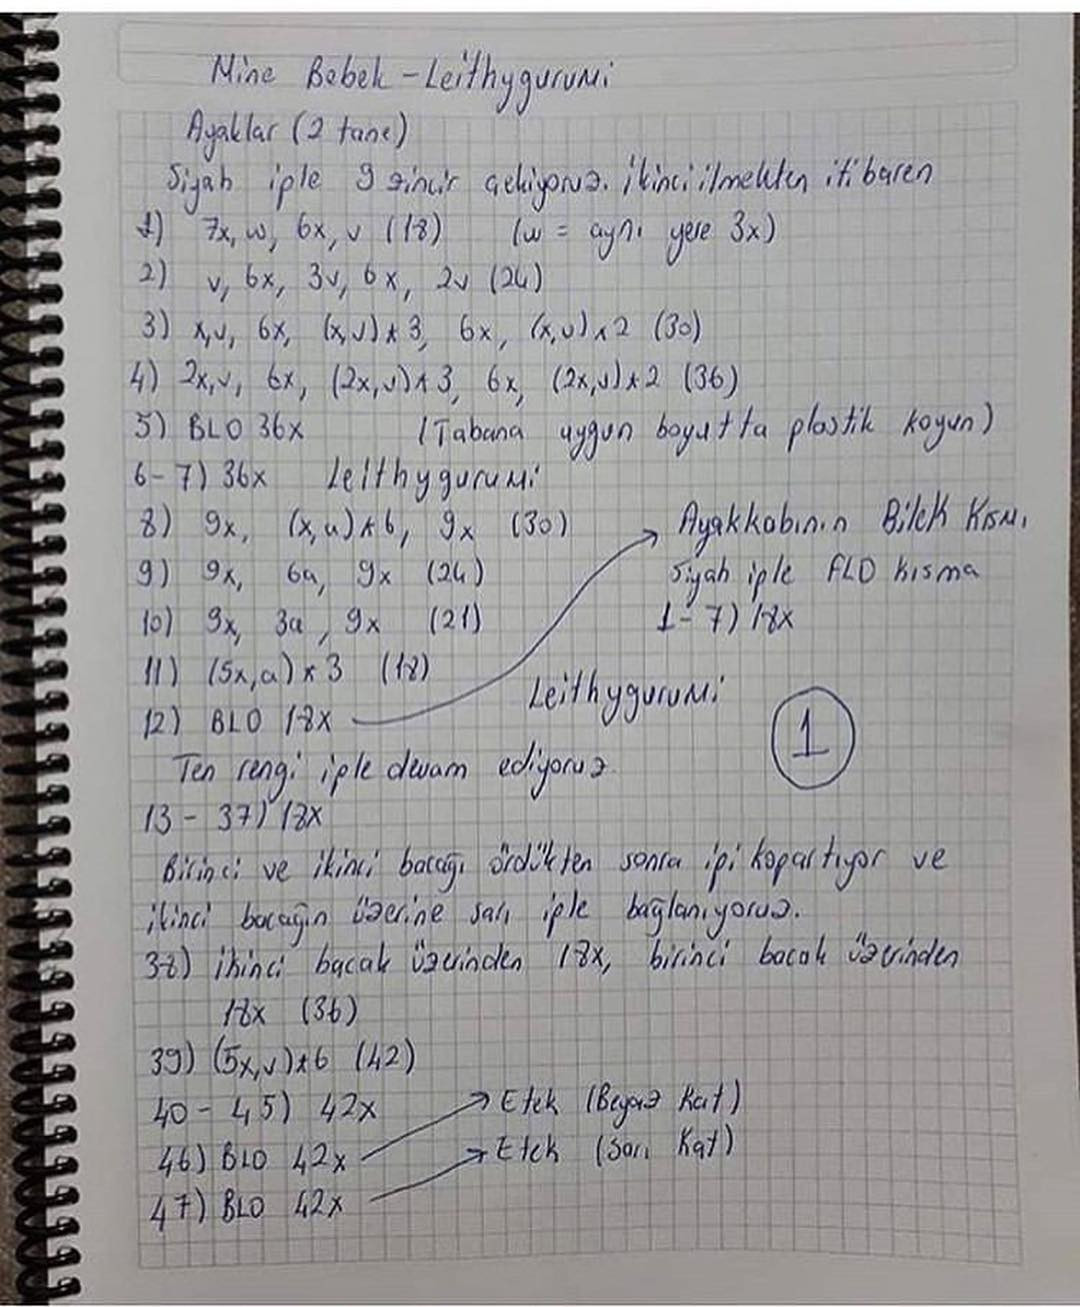 Mine Bebek - Leithygurumi
Ayaklar (2 tane)
Siyah iple 9 zincir çekiyoruz. İkinci ilmekten itibaren
1) 7x, w, 6x, v (18) (w = aynı yere 3x)
2) v, 6x, 3v, 6x, 2v (24)
3) x,v, 6x, (x,v)*3, 6x, (x,v)*2 (30)
4) 2x,v, 6x, (2x,v)*3, 6x, (2x,v)*2 (36)
5) BLO 36x (Tabana uygun boyutta plastik koyun)
6-7) 36x Leithygurumi
8) 9x, (x,a)*6, 9x (30)
9) 9x, 6a, 9x (24)
10) 9x, 3a, 9x (21)
11) (5x,a)*3 (18)
12) BLO 18x
Ayakkabının Bilek Kısmı
Siyah iple FLO kısma
1-7) 18x
Leithygurumi
1
Ten rengi iple devam ediyoruz.
13-37) 18x
Birinci ve ikinci bacağı ördükten sonra ipi kopartıyor ve
ikinci bacağın üzerine sarı iple bağlanıyoruz.
38) ikinci bacak üzerinden 18x, birinci bacak üzerinden
18x (36)
39) (5x,v)*6 (42)
40-45) 42x
46) BLO 42x → Etek (Beyaz Kat)
47) BLO 42x → Etek (Sarı Kat)